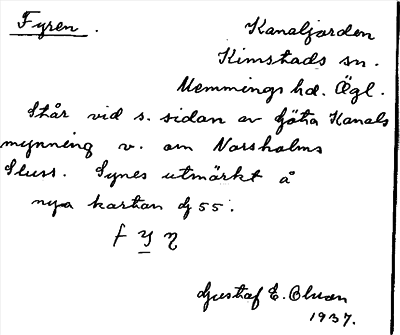 Fyren.
Kanaljorden
Kimstads sn.
Memmings hd. Ögl.
Står vid s. sidan av Göta Kanals
mynning v. om Norsholms
Sluss. Synes utmärkt å
nya kartan dj 55.
Gustaf E. Olsson
1937.